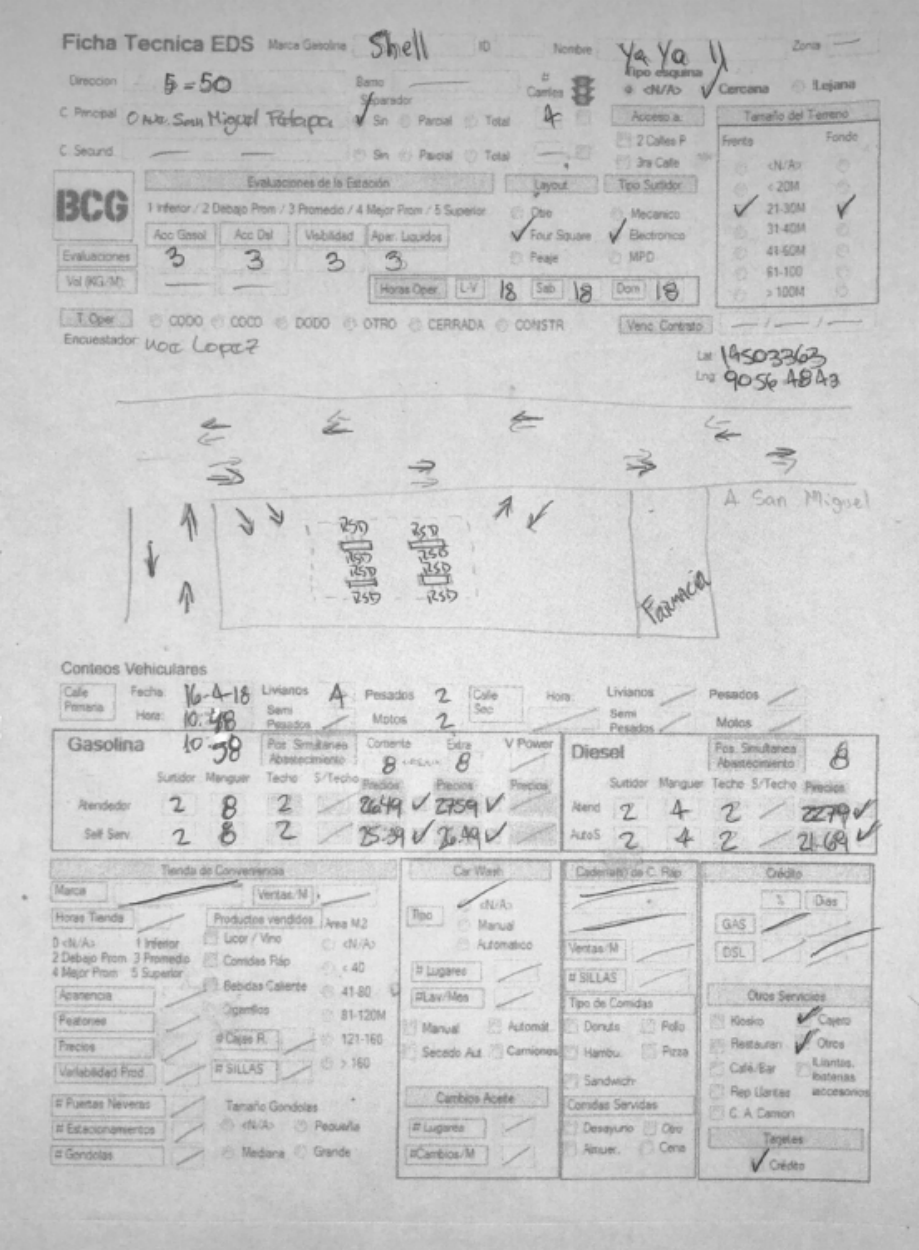 Ficha Tecnica EDS Marca Gasolina Shell ID Nombre Ya Ya II Zona
Direccion 5-50 Barrio # Carriles Tipo esquina <N/A> Cercana !Lejana
C Principal 0 Ave. San Miguel Petapa Separador Sin Parcial Total 4 Acceso a: Tamaño del Terreno
C Secund. Sin Parcial Total 2 Calles P 3ra Calle Frente Fondo
BCG Evaluaciones de la Estación Layout Tipo Surtidor <N/A>
1 Inferior / 2 Debajo Prom / 3 Promedio / 4 Mejor Prom / 5 Superior Otro Mecanico < 20M
Acc Gasol Acc Dsl Visibilidad Apar. Liquidos Four Square Electronico 21-30M
Evaluaciones 3 3 3 3 Peaje MPD 31-40M
41-60M
Vol (KG/M) Horas Oper. L-V 18 Sab 18 Dom 18 61-100
> 100M
T. Oper CODO COCO DODO OTRO CERRADA CONSTR Venc. Contrato
Encuestador Lopez
Lat 14503363
Lng 90564843
A San Miguel
RSD RSD
RSD RSD
RSD RSD
RSD RSD
Farmacia
Conteos Vehiculares
Calle Primaria Fecha: 16-4-18 Livianos 4 Pesados 2 Calle Sec Hora: Livianos Pesados
Hora: 10:48 Semi Pesados Motos 2 Semi Pesados Motos
Gasolina 10:58 Pos. Simultanea Abastecimiento Corriente 8 Extra 8 V Power Diesel Pos. Simultanea Abastecimiento 8
Surtidor Manguer Techo S/Techo Precios Precios Precios Surtidor Manguer Techo S/Techo Precios
Atendedor 2 8 2 26.49 27.59 Atend 2 4 2 22.79
Self Serv. 2 8 2 25.39 26.49 AutoS 2 4 2 21.69
Tienda de Conveniencia Car Wash Cadena(s) de C. Ráp Crédito
Marca Ventas/M <N/A> % Dias
Horas Tienda Productos vendidos Area M2 Tipo Manual GAS
0 <N/A> 1 Inferior Licor / Vino <N/A> Automatico Ventas/M DSL
2 Debajo Prom 3 Promedio Comidas Ráp < 40 # Lugares # SILLAS
4 Mejor Prom 5 Superior Bebidas Caliente 41-80 #Lav/Mes Tipo de Comidas Otros Servicios
Apariencia Cigarrillos 81-120M Manual Automát. Donuts Pollo Kiosko Cajero
Peatones # Cajas R. 121-160 Secado Aut. Camiones Hambu. Pizza Restauran Otros
Precios # SILLAS > 160 Sandwich Café/Bar Llantas, baterias accesorios
Variabilidad Prod. Rep Llantas
# Puertas Neveras Tamaño Gondolas Cambios Aceite Comidas Servidas C. A. Camion
# Estacionamientos <N/A> Pequeña # Lugares Desayuno Otro Tarjetas
# Gondolas Mediana Grande #Cambios/M Almuer. Cena Crédito